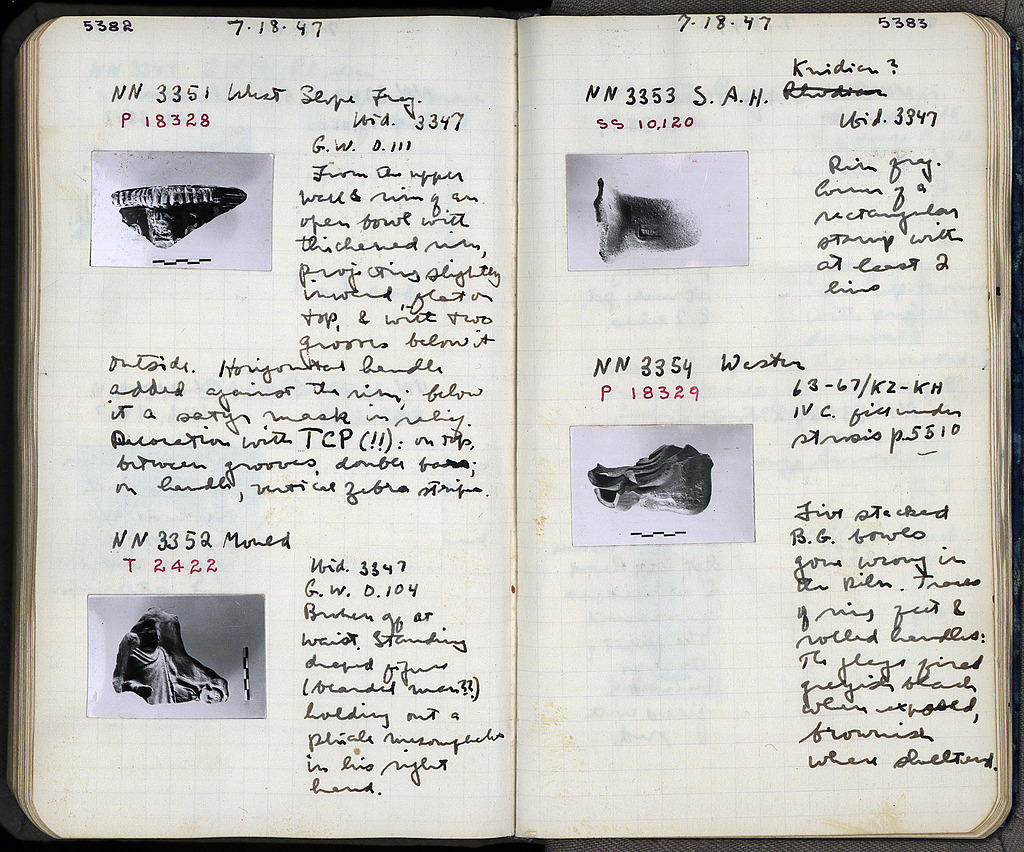 5382
7·18·47
NN 3351 West Slope Frag.
P 18328
Ibid. 3347
G.W. 0.111
From the upper
wall & rim of an
open bowl with
thickened rim,
projecting slightly
inward, flat on
top, & with two
grooves below it
outside. Horizontal handle
added against the rim; below
it a satyr mask in relief.
Decoration with TCP (!!): on top,
between grooves, double bars;
on handle, vertical zebra stripes.
NN 3352 Mould
T 2422
Ibid. 3347
G.W. 0.104
Broken off at
waist. Standing
draped figure
(bearded man??)
holding out a
phiale mesomphalos
in his right
hand.
5383
7·18·47
Knidian?
NN 3353 S.A.H. Rhodian
SS 10,120
Ibid. 3347
Rim frag.
Corner of a
rectangular
stamp with
at least 2
lines
NN 3354 Waster
P 18329
63-67/KZ-KH
IV C. fill under
strosis p. 5510
Five stacked
B.G. bowls
gone wrong in
the kiln. Traces
of ring feet &
rolled handles:
The glaze fired
greyish black
when exposed,
brownish
where sheltered.